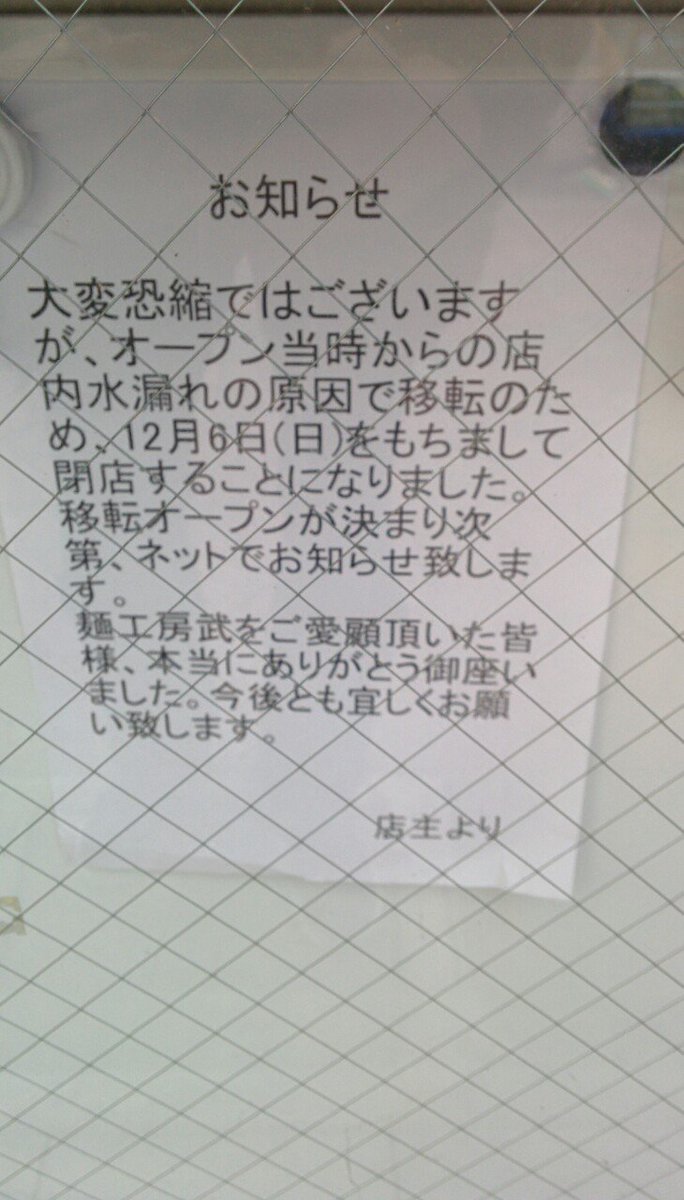 お知らせ
大変恐縮ではございます
が、オープン当時からの店
内水漏れの原因で移転のた
め、12月6日(日)をもちまして
閉店することになりました。
移転オープンが決まり次
第、ネットでお知らせ致しま
す。
麺工房武をご愛顧頂いた皆
様、本当にありがとう御座い
ました。今後とも宜しくお願
い致します。
店主より